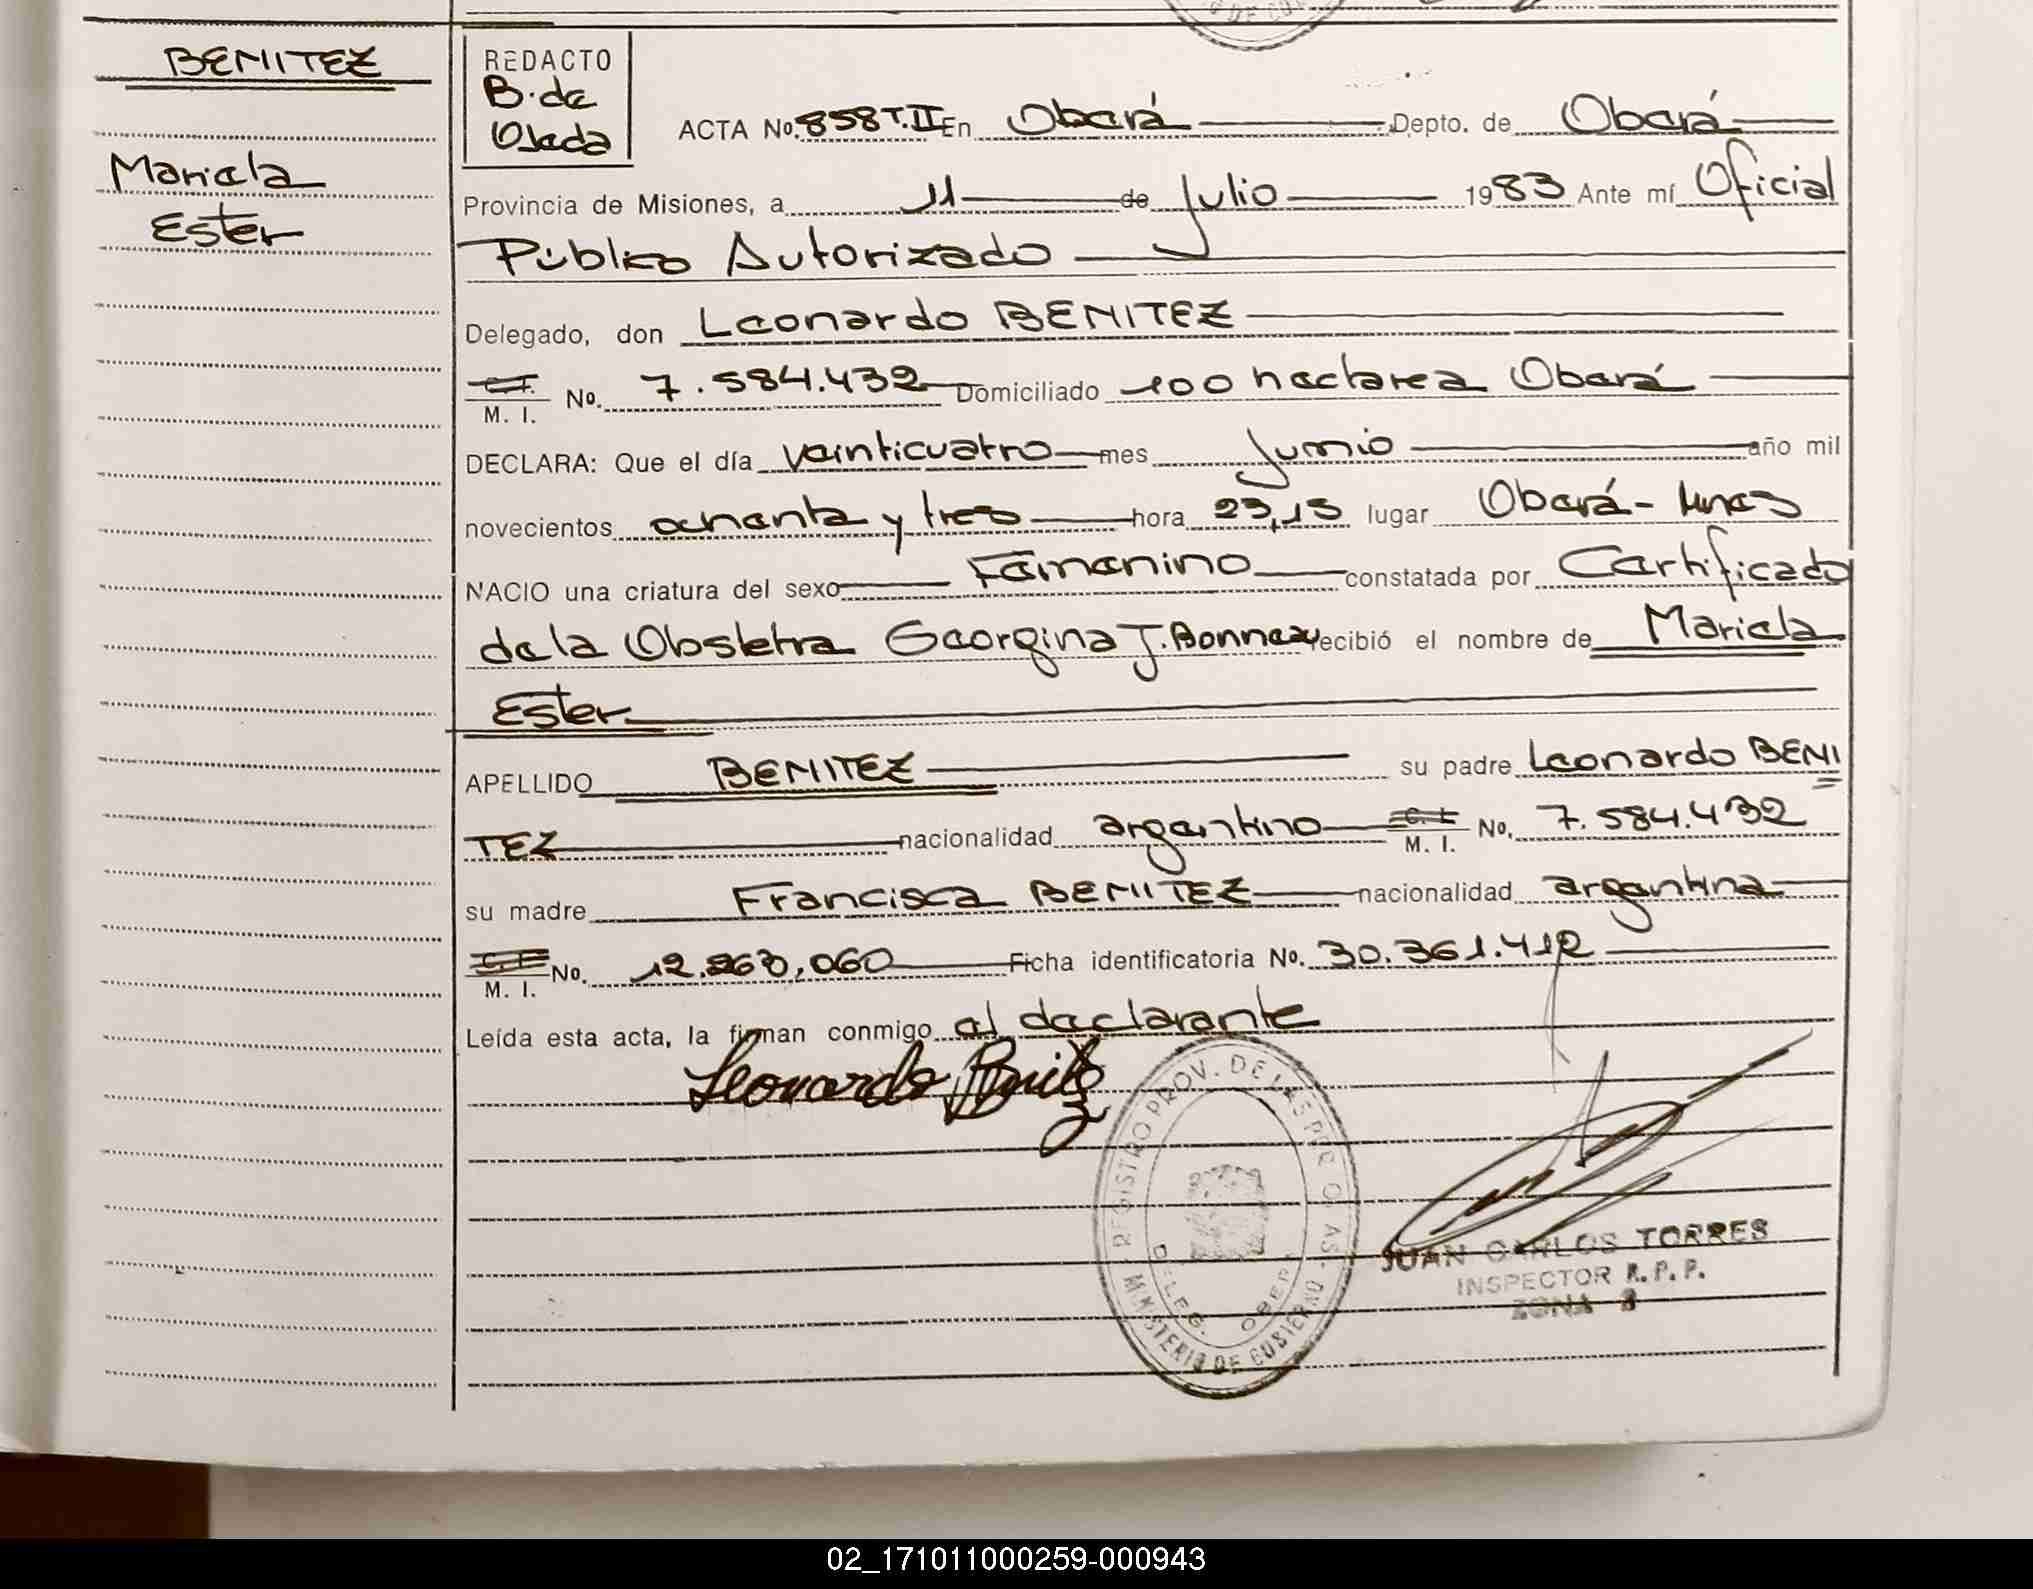 BENITEZ
Mariela
Ester
REDACTO
B. de
Ojeda
ACTA No. 858 T.II En Oberá Depto. de Oberá
Provincia de Misiones, a 11 de Julio 1983 Ante mí Oficial
Público Autorizado
Delegado, don Leonardo BENITEZ
C.I. M. I. No. 7.584.432 Domiciliado 100 hectarea Oberá
DECLARA: Que el día veinticuatro mes Junio año mil
novecientos ochenta y tres hora 23,15 lugar Oberá - Mnes
NACIO una criatura del sexo Femenino constatada por Certificado
de la Obstetra Georgina J. Bonnex recibió el nombre de Mariela
Ester
APELLIDO BENITEZ su padre Leonardo BENI
TEZ nacionalidad argentino C. I. M. I. No. 7.584.432
su madre Francisca BENITEZ nacionalidad argentina
C. I. M. I. No. 12.263.060 Ficha identificatoria No. 30.361.412
Leída esta acta, la firman conmigo el declarante
Leonardo Benitez
REGISTRO PROV. DE LAS PERSONAS
DELEG. OBERA
MINISTERIO DE GOBIERNO
JUAN CARLOS TORRES
INSPECTOR R. P. P.
ZONA
02_171011000259-000943